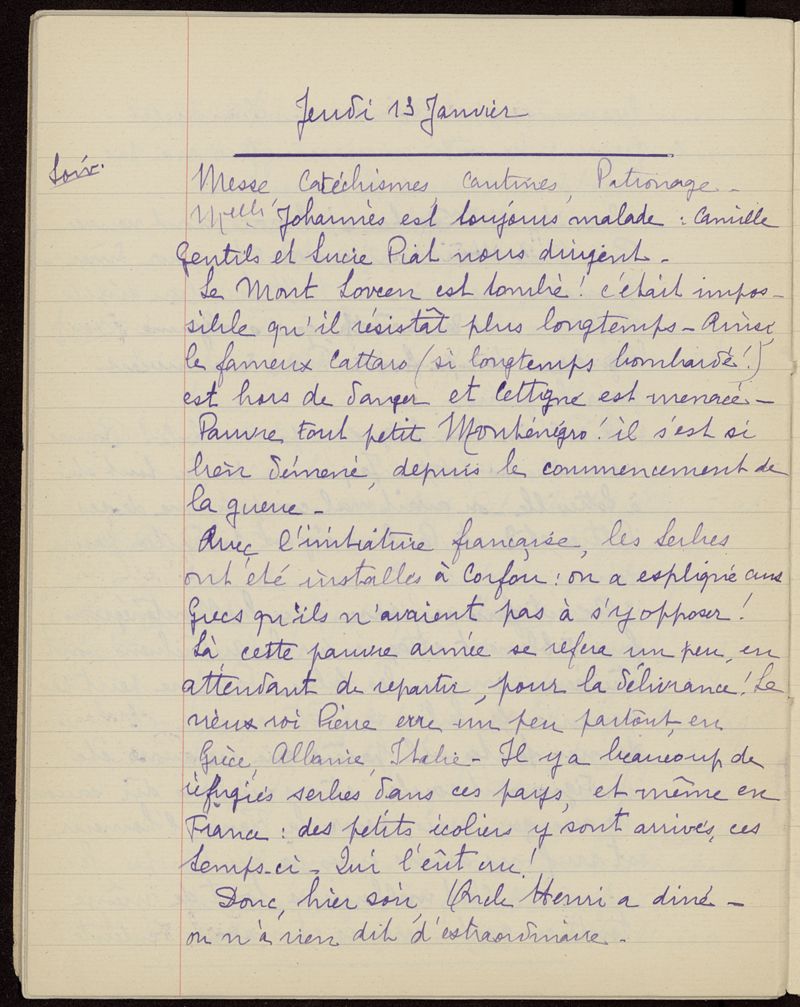 Jeudi 13 Janvier
Soir.
Messe Catéchismes, Cantines, Patronage -
Melle Johannès est toujours malade : Camille
Gentils et Lucie Piat nous dirigent -
Le Mont Lovcen est tombé ! c'était impos-
sible qu'il résistât plus longtemps - Ainsi,
le fameux Cattaro (si longtemps bombardé !)
est hors de danger et Cettigné est menacé -
Pauvre tout petit Monténégro ! il s'est si
bien démené, depuis le commencement de
la guerre -
Avec l'initiative française, les Serbes
ont été installés à Corfou : on a expliqué aux
Grecs qu'ils n'avaient pas à s'y opposer !
Là cette pauvre armée se refera un peu, en
attendant de repartir, pour la délivrance ! Le
vieux roi Pierre erre un peu partout, en
Grèce, Albanie, Italie - Il y a beaucoup de
réfugiés serbes dans ces pays, et même en
France : des petits écoliers y sont arrivés, ces
temps-ci - Qui l'eût cru !
Donc, hier soir, Oncle Henri a diné -
on n'a rien dit d'extraordinaire -